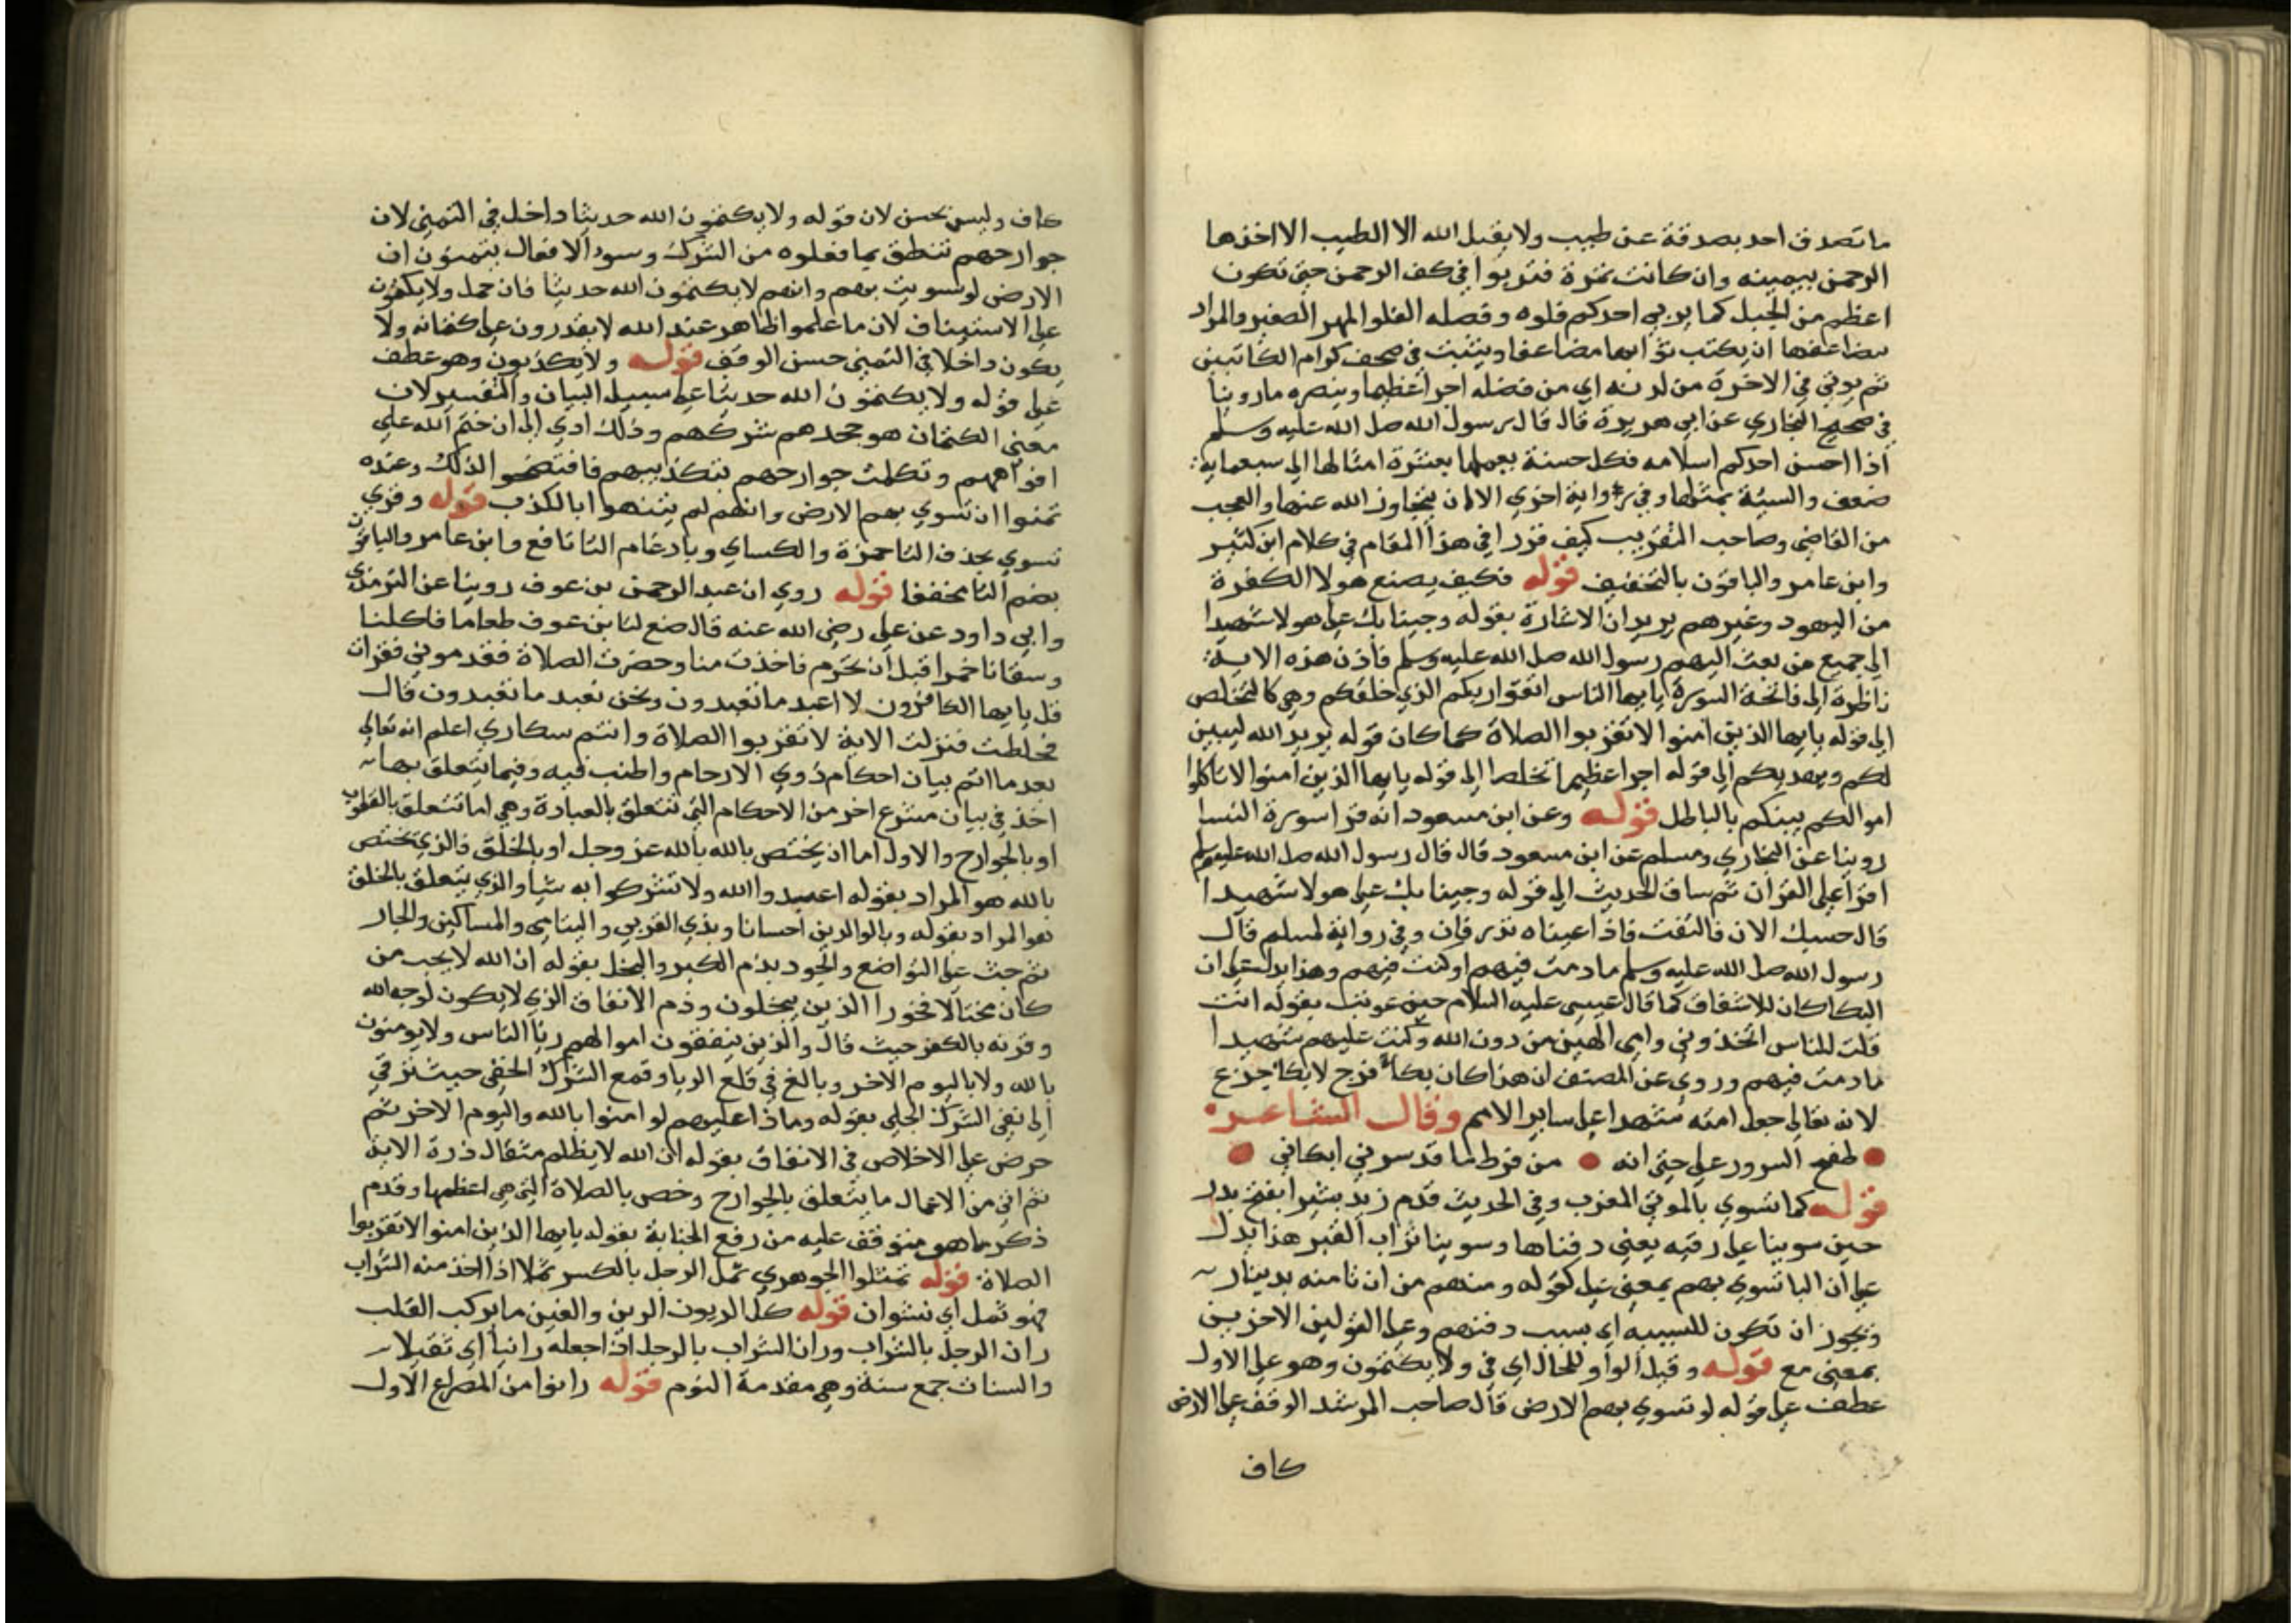 ما تصدق احد بصدقة عن طيب ولا يقبل الله الا الطيب الا اخذها
الرحمن بيمينه وان كانت تمرة فتربوا في كف الرحمن حتى تكون
اعظم من الجبل كما يربي احدكم فلوه وفصله الفلو المهر الصغير والمراد
بمضاعفها ان يكتب ثوابها مضاعفا ويثبت في صحف كرام الكاتبين
ثم يوتي في الاخرة من لدنه اي من فضله اجرا عظيما وينصره ما روينا
في صحيح البخاري عن ابي هريرة قال قال رسول الله صل الله عليه وسلم
اذا احسن احدكم اسلامه فكل حسنة يعملها بعشرة امثالها الي سبعماية
ضعف والسيئة بمثلها وفي رواية اخري الا ان يتجاوز الله عنها والعجب
من القاضي وصاحب التقريب كيف قررا في هذا المقام في كلام ابن كثير
وابن عامر والباقون بالتخفيف قوله فكيف يصنع هولا الكفرة
من اليهود وغيرهم يريد ان الاشارة بقوله وجينا بك علي هولا شهيدا
الي جميع من بعث اليهم رسول الله صل الله عليه وسلم فاذن هذه الاية
ناظرة الي فاتحة السورة يايها الناس اتقوا ربكم الذي خلقكم وهي كالتخلص
الي قوله يايها الذين امنوا لا تقربوا الصلاة كما كان قوله يريد الله ليبين
لكم ويهديكم الي قوله اجرا عظيما تخلصا الي قوله يايها الذين امنوا لا تاكلوا
اموالكم بينكم بالباطل قوله وعن ابن مسعود انه قرا سورة النسا
روينا عن البخاري ومسلم عن ابن مسعود قال قال رسول الله صل الله عليه وسلم
اقرا علي القران ثم ساق الحديث الي قوله وجينا بك علي هولا شهيدا
قال حسبك الان فالتفت فاذا عيناه تذرفان وفي رواية لمسلم قال
رسول الله صل الله عليه وسلم ما دمت فيهم او كنت فيهم وهذا يدل علي ان
البكا كان للاشفاق كما قال عيسي عليه السلام حين عوتب بقوله انت
قلت للناس اتخذوني وامي الهين من دون الله وكنت عليهم شهيدا
ما دمت فيهم وروي عن المصنف ان هذا كان بكا فرح لا بكا جزع
لانه تعالي جعل امته شهدا علي ساير الامم وقال الشاعر
طفح السرور علي حتي انه من فرط ما قد سرني ابكاني
قوله كما تسوي بالموتي المغرب وفي الحديث قدم زيد بشيرا بفتح بدر
حين سوينا علي رقيه يعني دفناها وسوينا تراب القبر هذا يدل
علي ان البا تسوي بهم بمعني علي كقوله ومنهم من ان تامنه بدينار
ويجوز ان تكون للسببيه اي بسبب دفنهم وعلي القولين الاخرين
بمعني مع قوله وقيل الواو للحال اي في ولا يكتمون وهو علي الاول
عطف علي قوله لو تسوي بهم الارض قال صاحب المرشد الوقف علي الارض
كاف
كاف وليس بحسن لان قوله ولا يكتمون الله حديثا داخل في التمني لان
جوارحهم تنطق بما فعلوه من الشرك وسوء الافعال يتمنون ان
الارض لو سويت بهم وانهم لا يكتمون الله حديثا فان حمل ولا يكتمون
علي الاستيناف لان ما علموا ظاهر عند الله لا يقدرون علي كتمانه ولا
يكون داخلا في التمني حسن الوقف قوله ولا يكذبون وهو عطف
علي قوله ولا يكتمون الله حديثا علي سبيل البيان والتفسير لان
معني الكتمان هو جحدهم شركهم وذلك ادي الي ان ختم الله علي
افواههم وتكلمت جوارحهم بتكذيبهم فافتضحوا لذلك وعنده
تمنوا ان تسوي بهم الارض وانهم لم ينتهوا بالكذب قوله وقري
تسوي بحذف التا حمزة والكساي وبادغام التا نافع وابن عامر والباقون
بضم التا مخففا قوله روي ان عبد الرحمن بن عوف روينا عن الترمذي
وابي داود عن علي رضي الله عنه قال صنع لنا بن عوف طعاما فاكلنا
وسقانا خمرا قبل ان تحرم فاخذت منا وحضرت الصلاة فقدموني فقرات
قل يايها الكافرون لا اعبد ما تعبدون ونحن نعبد ما تعبدون قال
فخلطت فنزلت الاية لا تقربوا الصلاة وانتم سكاري اعلم انه تعالي
بعد ما اتم بيان احكام ذوي الارحام واطنب فيه وفيما يتعلق بها
اخذ في بيان مشرع اخر من الاحكام التي تتعلق بالعبادة وهي اما تتعلق بالقلوب
او بالجوارح والاول اما ان يختص بالله بالله عز وجل او بالخلق فالذي يختص
بالله هو المراد بقوله اعبدوا الله ولا تشركوا به شيا والذي يتعلق بالخلق
هو المراد بقوله وبالوالدين احسانا وبذي القربي واليتامي والمساكين والجار
ثم حث علي التواضع والجود بذم الكبر والبخل بقوله ان الله لا يحب من
كان مختالا فخورا الذين يبخلون وذم الانفاق الذي لا يكون لوجه الله
وقرنه بالكفر حيث قال والذين ينفقون اموالهم ريا الناس ولا يومنون
بالله ولا باليوم الاخر وبالغ في قلع الريا وقمع الشرك الخفي حيث ترقي
الي نفي الشرك الجلي بقوله وماذا عليهم لو امنوا بالله واليوم الاخر ثم
حرض علي الاخلاص في الانفاق بقوله ان الله لا يظلم مثقال ذرة الاية
ثم اتي من الاعمال ما يتعلق بالجوارح وخص بالصلاة التي هي اعظمها وقدم
ذكر ما هو متوقف عليه من رفع الجنابة بقوله يايها الذين امنوا لا تقربوا
الصلاة قوله تمثلوا الجوهري ثمل الرجل بالكسر ثملا اذا اخذ منه الشراب
فهو ثمل اي نشوان قوله كل الريون الرين والغين ما يركب القلب
ران الرجل بالشراب وران الشراب بالرجل اذا جعله رانيا اي ثقيلا
والسنات جمع سنة وهي مقدمة النوم قوله رانوا من المصراع الاول